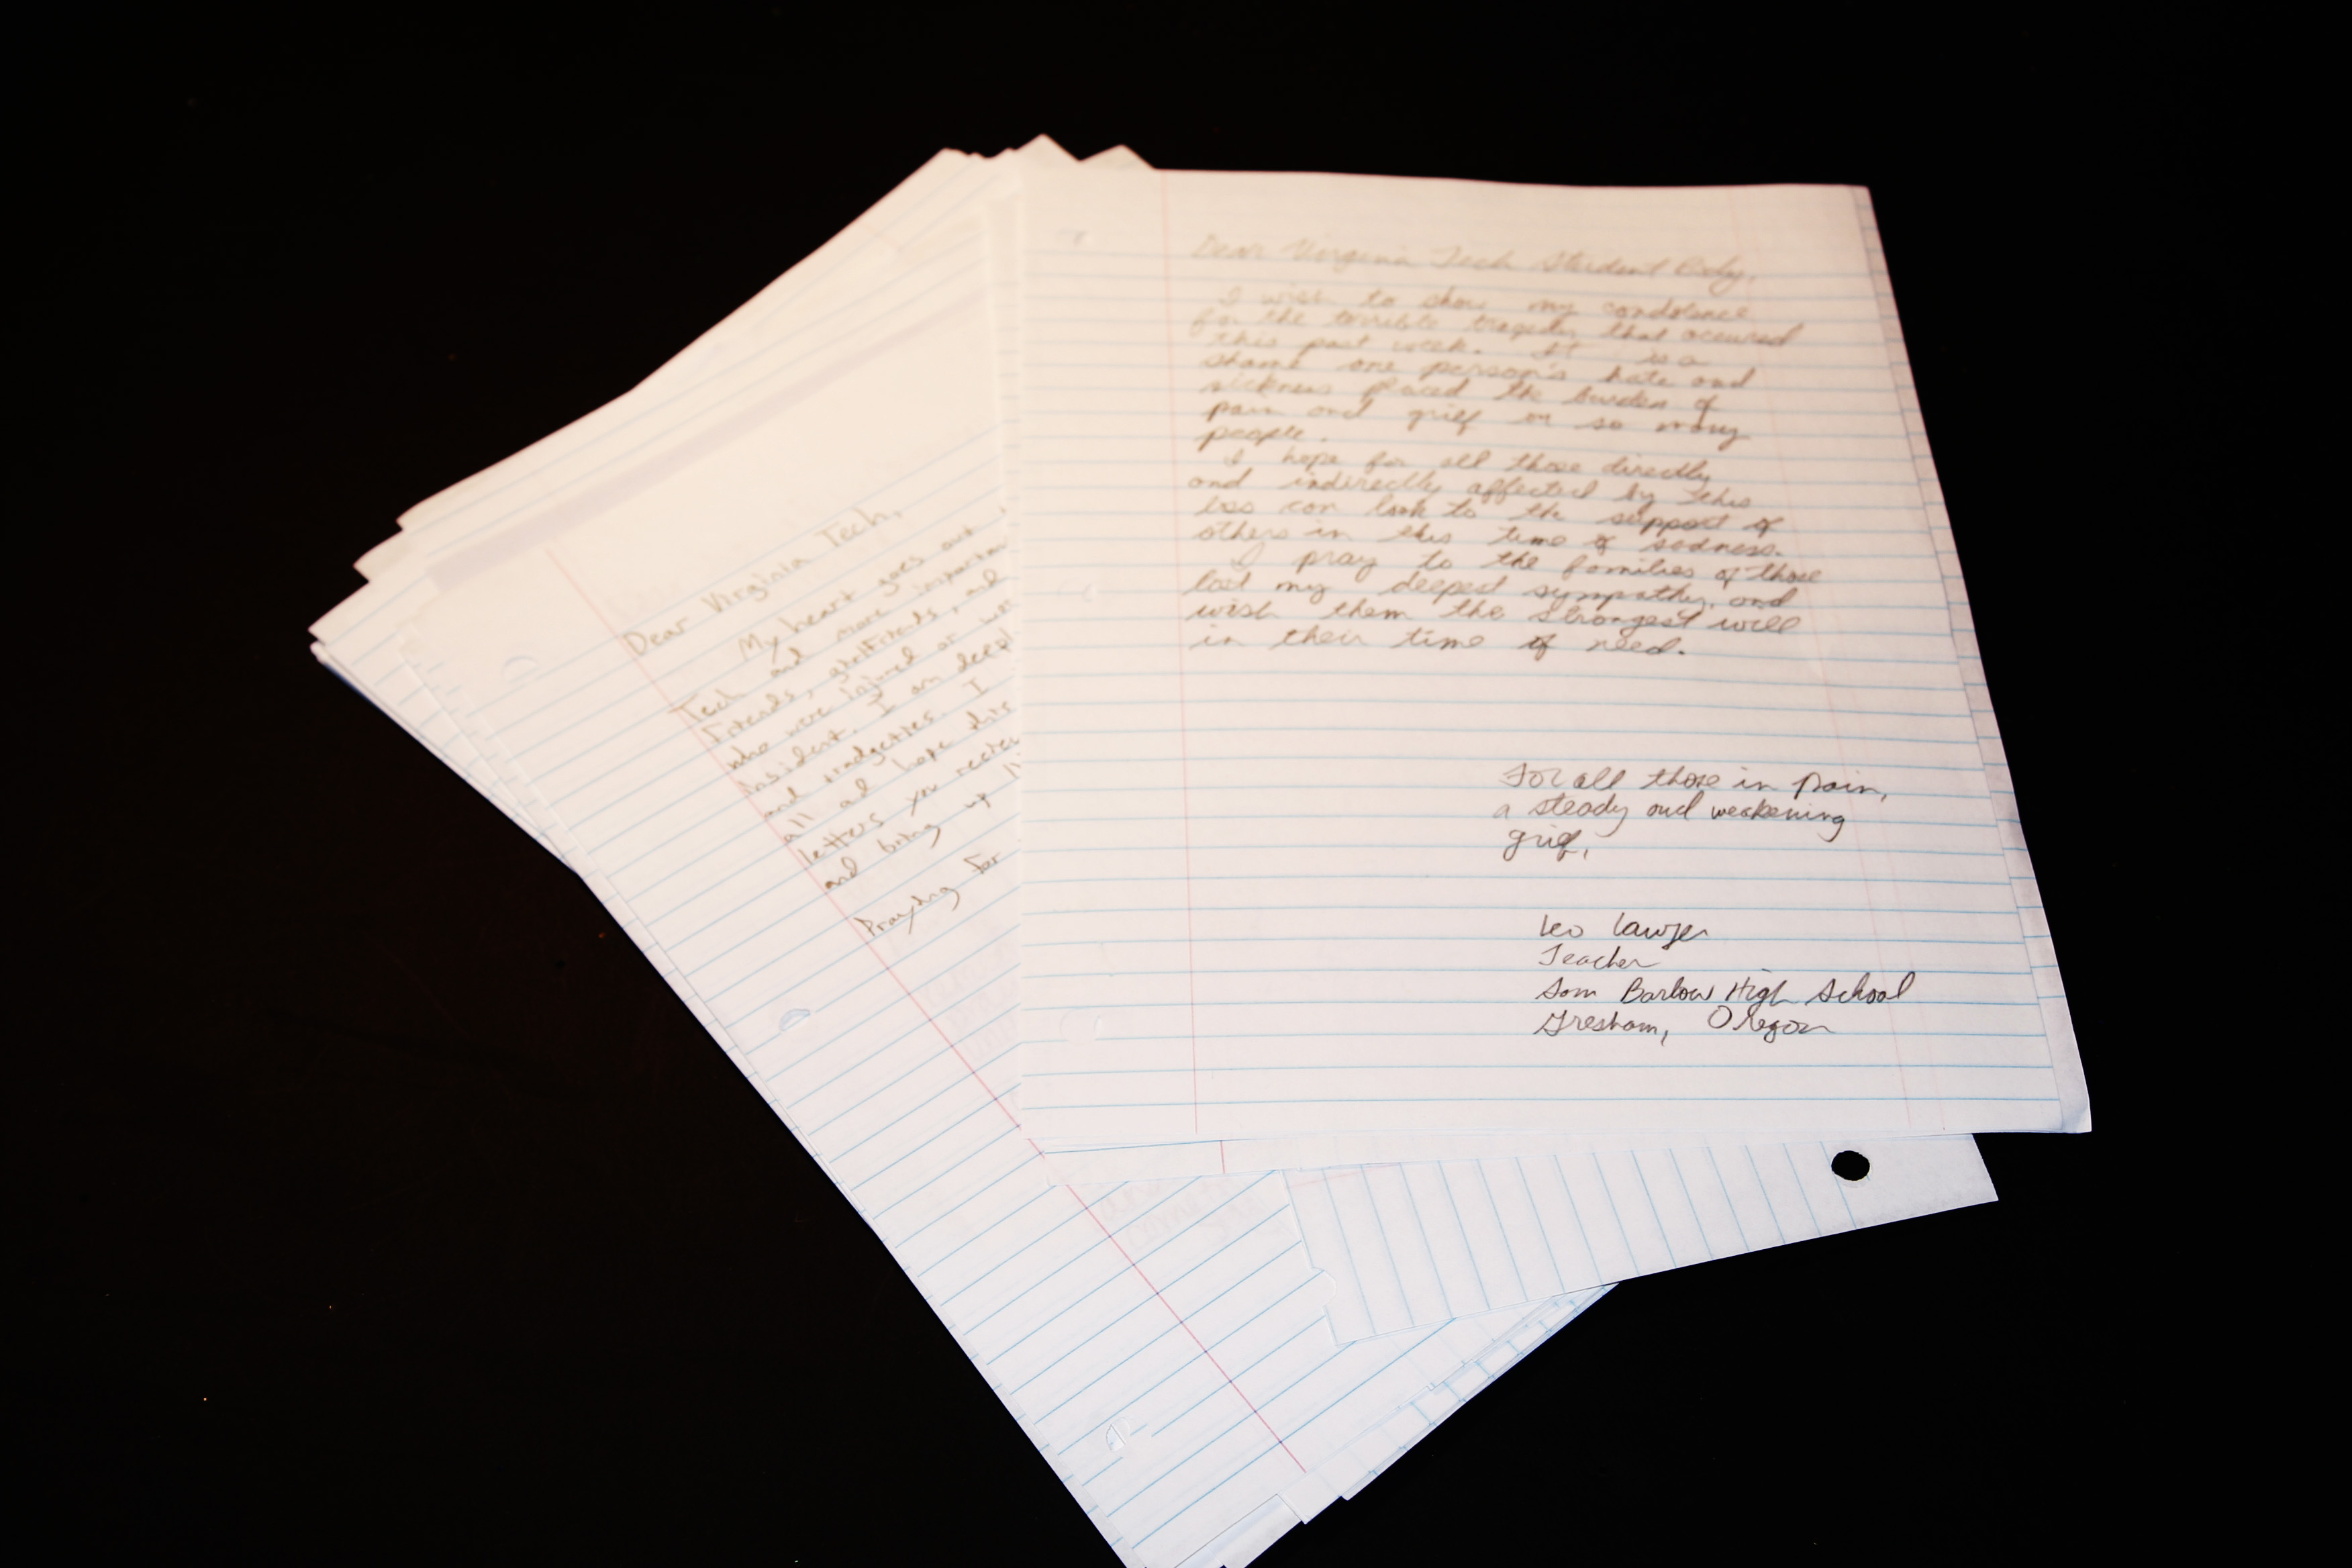 Dear Virginia Tech Student Body,
I wish to show my condolence
for the terrible tragedy that occured
this past week. It is a
shame one person's hate and
sickness placed the burden of
pain and grief on so many
people.
I hope for all those directly
and indirectly affected by this
loss can look to the support of
others in this time of sadness.
I pray to the families of those
lost my deepest sympathy, and
wish them the strongest will
in their time of need.
For all those in pain,
a steady and weakening
grief,
Leo
Teacher
Sam Barlow High School
Gresham, Oregon
Dear Virginia Tech,
My heart goes out
Tech and more importan
friends, girlfriends, and
who were injured or
insident. I am deepl
and tradgeties. I
all ad hope this
letters you reciev
and bring up
Praying for